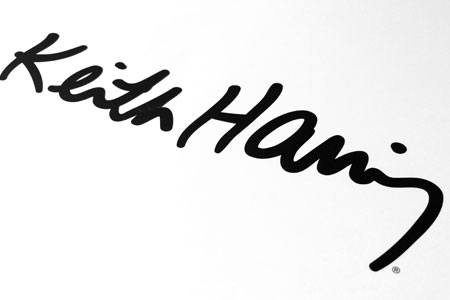 Keith Haring
®